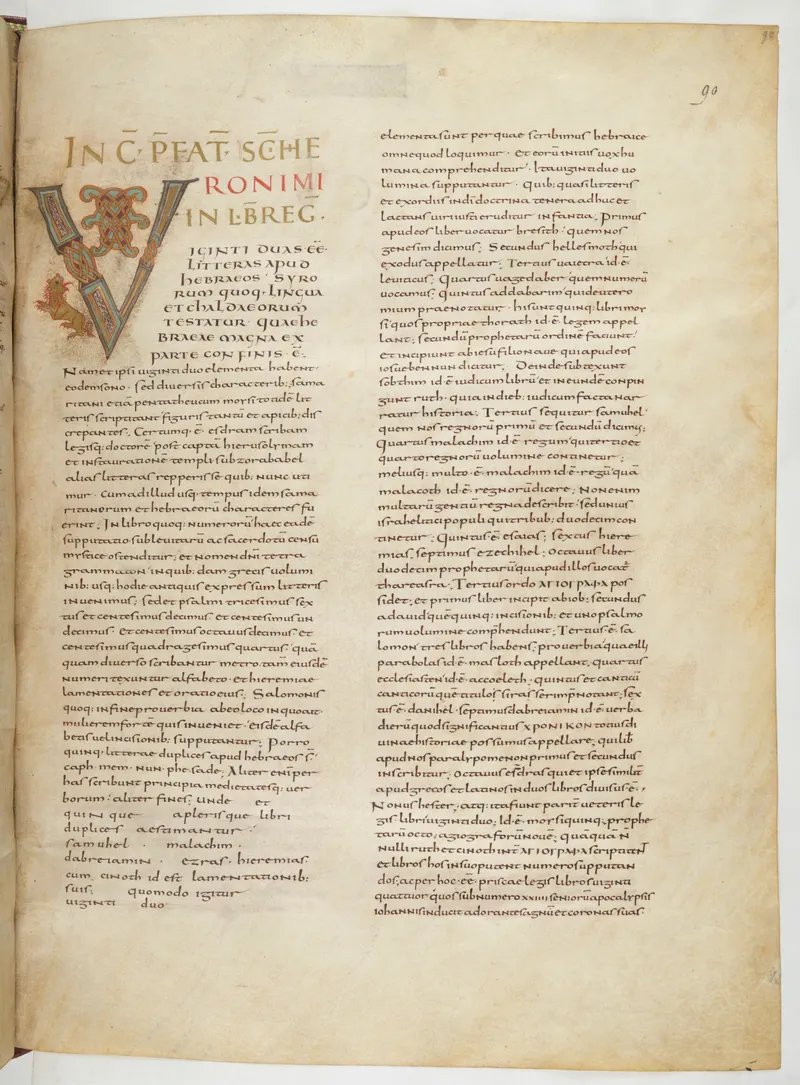 90
IN C̄· P̄FAT̄· SC̄HE
RONIMI
IN L·B̄REḠ·
VICINTI DUAS·ĒĒ·
LITTERAS APUD
hEBRAEOS· SYRO
RUM QUOQ· LINGUA
ET ChALDAEORUM
TESTATUR· QUAEhE
BRAEAE MAGNA EX
PARTE CONFINIS·Ē·
Nam et ipsi uiginti duo elementa habent·
eodem sono· sed diuersis characterib:; sama
ritani etiā pentatheucum moysi totidē lit
teris scripticant figuris tantū et apicib: dis
crepantes; Certumq·ē· esdram scribam
legisq: doctorē post captā hierusolymam
et instaurationē templi sub zorababel
alias litteras repperisse quib: nunc uti
mur· cum ad illud usq· tempus idem sama
ritanorum et hebraeorū characteres fu
erint; In libro quoq: numerorū haec eadē
supputatio sub leuitarū ac sacerdotū censū
mystice ostenditur; et nomen dn̄i tetra
grammaton in quib: dam grecis uolumi
nib: usq: hodie antiquis expressum litteris
inuenimus; sed et psalmi tricesimus sex
tus et centesimus decimus et centesimus un
decimus· et centesimus octauus decimus et
centesimus quadragesimus quartus· quā
quam diuerso scribantur metro· tam̄ eiusdē
numeri texuntur alfabeto· et hieremiae
lamentationes et oratio eius; Salomonis
quoq: in fine prouerbia ab eo loco in quo ait·
mulierem fortē quis inueniet· eisdē alfa
betis uel incisionib: supputantur; Porro
quinq· litterae duplices apud hebraeos s̄·
caph· mem· nun· phe· sade; Aliter enī per
has scribunt principia medietatesq: uer
borum· aliter fines; unde et
quinque a plerisque libri
duplices aestimantur·
samuhel· malachim·
dabreiamin· ezras· hieremias
cum cinoth id est lamentationib:
suis; quomodo igitur
uiginti duo
elementa sunt per quae scribimus hebraice
omne quod loquimur· et eorū initiis uox hu
mana comprehenditur· Ita uiginti duo uo
lumina supputantur· quib: quasi litteris
et exordiis in dī doctrina tenera adhuc et
lactans uiri iusti eruditur infantia; Primus
apud eos liber uocatur bresith· quem nos
genesim dicimus; Secundus hellesmoth qui
exodus appellatur; Tertius uaiecra id·ē·
leuiticus; Quartus uagedaber quem numerū
uocamus; quintus addabarim qui deutero
mium praenotatur· hi sunt quinq: libri moy
si quos proprie thorath id·ē· legem appel
lant; secundū prophetarū ordinē faciunt·
et incipiunt ab iesu filio naue qui apud eos
iosue ben nun dicitur; Deinde subtexunt
sobthim id·ē· iudicum librū· et in eundē conpin
gunt ruth· quia in dieb: iudicum facta nar
ratur historia; Tertius sequitur samuhel·
quem nos regnorū primū et secundū dicimus;
Quartus malachim id·ē· regum· qui tertio et
quarto regnorū uolumine continetur;
meliusq: multo·ē· malachim id·ē· regū quā
malacoth id·ē· regnorū dicere; Non enim
multarū gentiū regna describit· sed unius
israhelitici populi qui tribub: duodecim con
tinetur; Quintus·ē· esaias; sextus hiere
mias; septimus ezechihel; Octauus liber
duodecim prophetarū qui apud illos uocat̄
thareasra; Tertius ordo ΑΓΙΟΓΡΑΦΑ pos
sidet; et primus liber incipit ab iob; secundus
a dauid quē quinq: incisionib: et uno psalmo
rum uolumine comp̄hendunt; Tertius·ē· sa
lomon tres libros habens; prouerbia quae illi
parabolas id·ē· masloth appellant; quartus
ecclesiasten id·ē· accoeleth; quintus et canticū
canticorū quē titulo syras serim p̄notant; sex
tus·ē· danihel· septimus dabreiamin id·ē· uerba
dierū quod significantius XPONIKON totius di
uinae historiae possumus appellare; qui lib̄
apud nos paralypomenon primus et secundus
inscribitur; Octauus esdras qui et ipse similit̄
apud grecos et latinos in duos libros diuisus·ē·;
Nonus hester· atq: ita fiunt parit̄ ueteris le
gis libri uiginti duo; Id·ē· moysi quinq; prophe
tarū octo; agiograforū nouē; quāquā n̄
nulli ruth et cinoth int̄ ΑΓΙΟΓΡΑΦΑ scriptitent̄
et libros hos in suo putent numero supputan
dos; ac per hoc·ēē· priscae legis libros uiginti
quattuor quos sub numero xxiiii seniorū apocalypsis
iohannis inducit adorantes agnū et coronas suas·